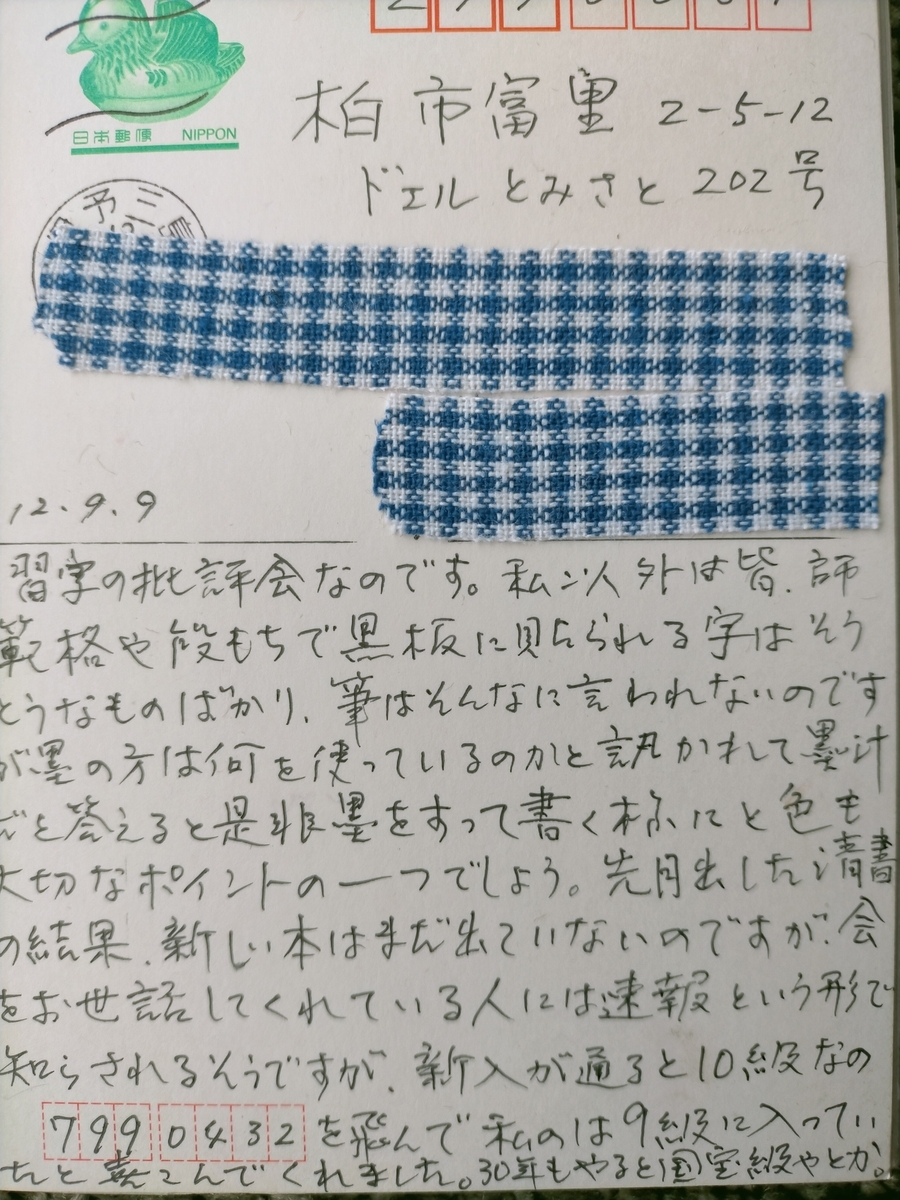 日本郵便 NIPPON
柏市富里 2-5-12
ドエルとみさと 202号
予三島
12.9.9
習字の批評会なのです。私以外は皆、師
範格や段もちで黒板に貼られる字はそう
とうなものばかり、筆はそんなに言われないのです
が墨の方は何を使っているのかと訊かれて墨汁
だと答えると是非墨をすって書く様にと色も
大切なポイントの一つでしょう。先月出した清書
の結果、新しい本はまだ出ていないのですが、会
をお世話してくれている人には速報という形で
知らされるそうですが、新入が通ると10級なの
799 0432 を飛んで私のは9級に入ってい
たと喜こんでくれました。30年もやると国宝級やとか。